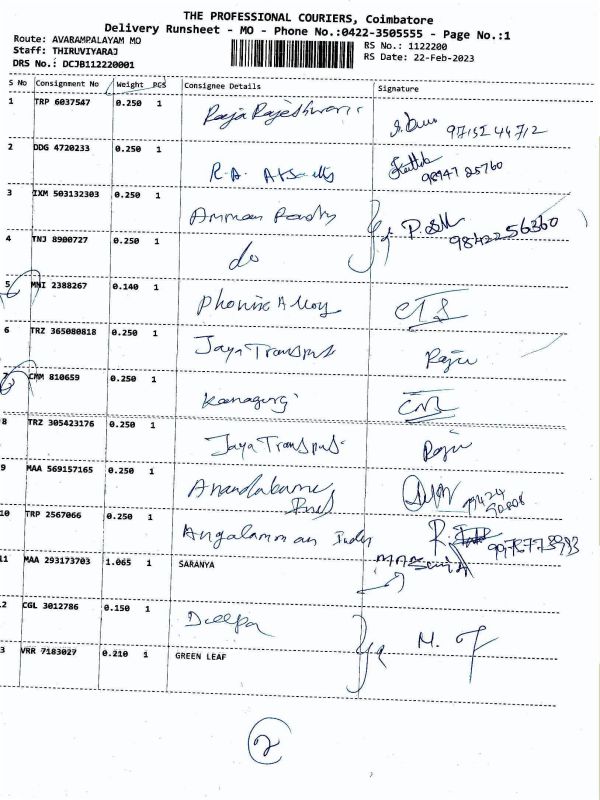 THE PROFESSIONAL COURIERS, Coimbatore
Delivery Runsheet - MO - Phone No.:0422-3505555 - Page No.:1
Route: AVARAMPALAYAM MO
RS No.: 1122200
Staff: THIRUVIYARAJ
RS Date: 22-Feb-2023
DRS No.: DCJB112220001
S No Consignment No Weight PCS Consignee Details Signature
1 TRP 6037547 0.250 1 Raja Rajeshwari 97152 44712
2 DDG 4720233 0.250 1 R.A. 98947 85760
3 IXM 503132303 0.250 1 Amman 9842256360
4 TNJ 8900727 0.250 1 do
5 MNI 2388267 0.140 1 Phonix Alloy
6 TRZ 365080818 0.250 1 Jaya Transpus Raju
7 CMM 810659 0.250 1
8 TRZ 305423176 0.250 1 Jaya Transpus Raju
9 MAA 569157165 0.250 1
10 TRP 2567066 0.250 1 Angalamman Indu
11 MAA 293173703 1.065 1 SARANYA
2 CGL 3012786 0.150 1 Deepa M.
3 VRR 7183027 0.210 1 GREEN LEAF
2